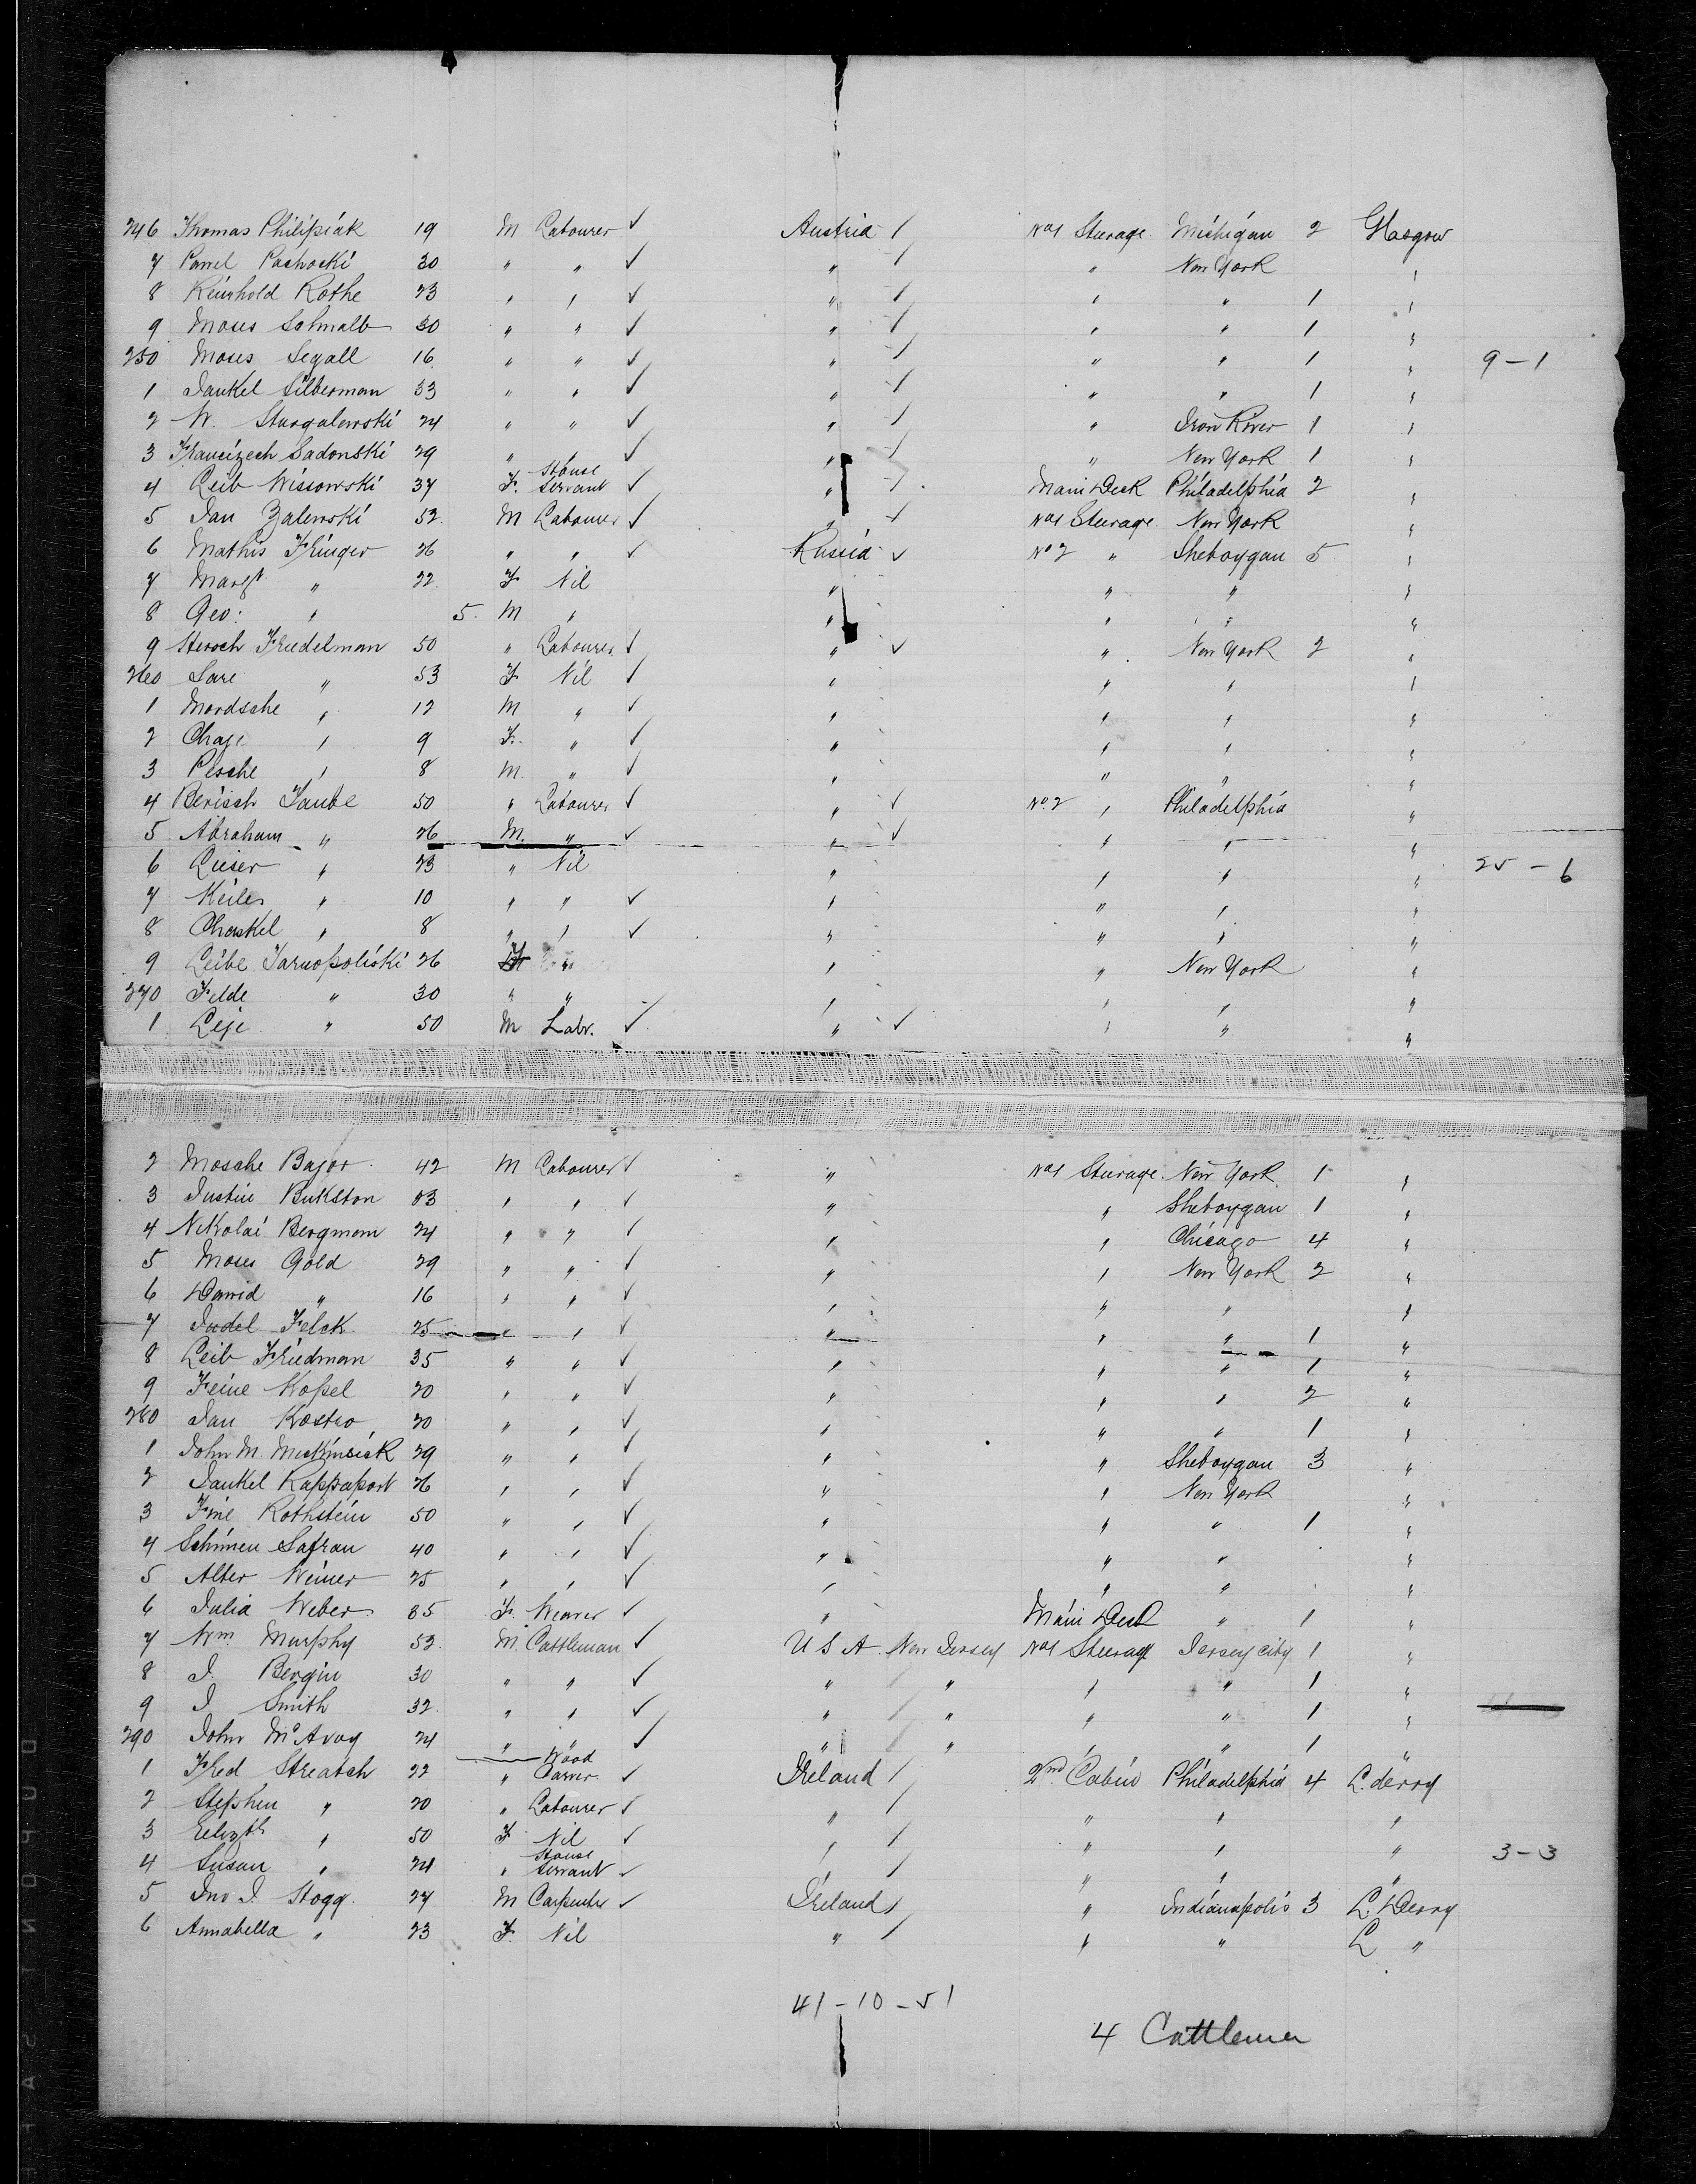 246 Thomas Philipiak 19 M Labourer ✓ Austria / No1 Steerage Michigan 2 Glasgow
7 Pawel Pachocki 30 " " ✓ " / " New York "
8 Reinhold Rothe 23 " " ✓ " / " " 1 "
9 Moses Schmalb 30 " " ✓ " / " " 1 "
250 Moses Segall 16 " " ✓ " / " " 1 " 9-1
1 Jankel Silberman 33 " " ✓ " / " " 1 "
2 W. Sturgalewski 24 " " ✓ " / " Iron River 1 "
3 Francizech Sadonski 29 " " ✓ " / " New York 1 "
4 Leib Wissowski 37 F. House Servant ✓ " / Main Deck Philadelphia 2 "
5 Jan Zalewski 52 M Labourer ✓ " / No1 Steerage New York "
6 Mathis Kringer 26 " " ✓ Russia ✓ No2 " Sheboygan 5 "
7 Margt " 22 F Nil " " " "
8 Geo: " 5 M " " " " "
9 Hersch Friedelman 50 " Labourer ✓ " ✓ " New York 2 "
260 Sare " 53 F Nil ✓ " " " "
1 Mordsche " 12 M " ✓ " " " "
2 Chaje " 9 F. " ✓ " " " "
3 Pesche " 8 M. " ✓ " " " "
4 Berisch Taube 50 " Labourer ✓ " ✓ No.2 " Philadelphia "
5 Abraham " 26 M. " ✓ " ✓ " " "
6 Lieser " 23 " Nil " " " " 25-6
7 Keiles " 10 " " ✓ " " " "
8 Chaskel " 8 " " ✓ " " " "
9 Leibe Tarnopoliski 26 " " " New York "
270 Felde " 30 " " " " " "
1 Leje " 50 M Labr. ✓ " ✓ " " "
2 Mosche Bajor 42 M Labourer ✓ " No1 Steerage New York 1 "
3 Justin Bukston 33 " " ✓ " " Sheboygan 1 "
4 Nikolai Bergmom 24 " " ✓ " " Chicago 4 "
5 Moses Gold 29 " " ✓ " " New York 2 "
6 Dawid " 16 " " ✓ " " " "
7 Judel Felck 25 " " ✓ " " " 1 "
8 Leib Friedman 35 " " ✓ " " " 1 "
9 Feine Kopel 20 " " ✓ " " " 2 "
280 Jan Kostro 20 " " ✓ " " " 1 "
1 John M. 29 " " ✓ " " Sheboygan 3 "
2 Jankel Rappaport 26 " " ✓ " " New York "
3 Fine Rothstein 50 " " ✓ " " " 1 "
4 Schimen Safran 40 " " ✓ " " " "
5 Alter Weiner 25 " " ✓ " " " "
6 Julia Weber 35 F. Weaver ✓ " Main Deck " 1 "
7 Wm. Murphy 52 M. Cattleman ✓ U S A New Jersey No1 Steerage Jersey city 1 "
8 J. Bergin 30 " " ✓ " " " " 1 "
9 J Smith 32 " " ✓ " " " " 1 "
290 John McAvoy 24 " " ✓ " " " " 1 "
1 Fred Streatch 22 " Wood Carver ✓ Ireland / 2nd Cabin Philadelphia 4 L.derry
2 Stephen " 20 " Labourer ✓ " / " " "
3 Elizth " 50 F Nil ✓ " / " " " 3-3
4 Susan " 24 " House Servant ✓ " / " " "
5 Jno J. Hogg 27 M Carpenter ✓ Ireland / " Indianapolis 3 L. Derry
6 Annabella " 23 F. Nil " / " " L "
41-10-51
4 Cattlemen